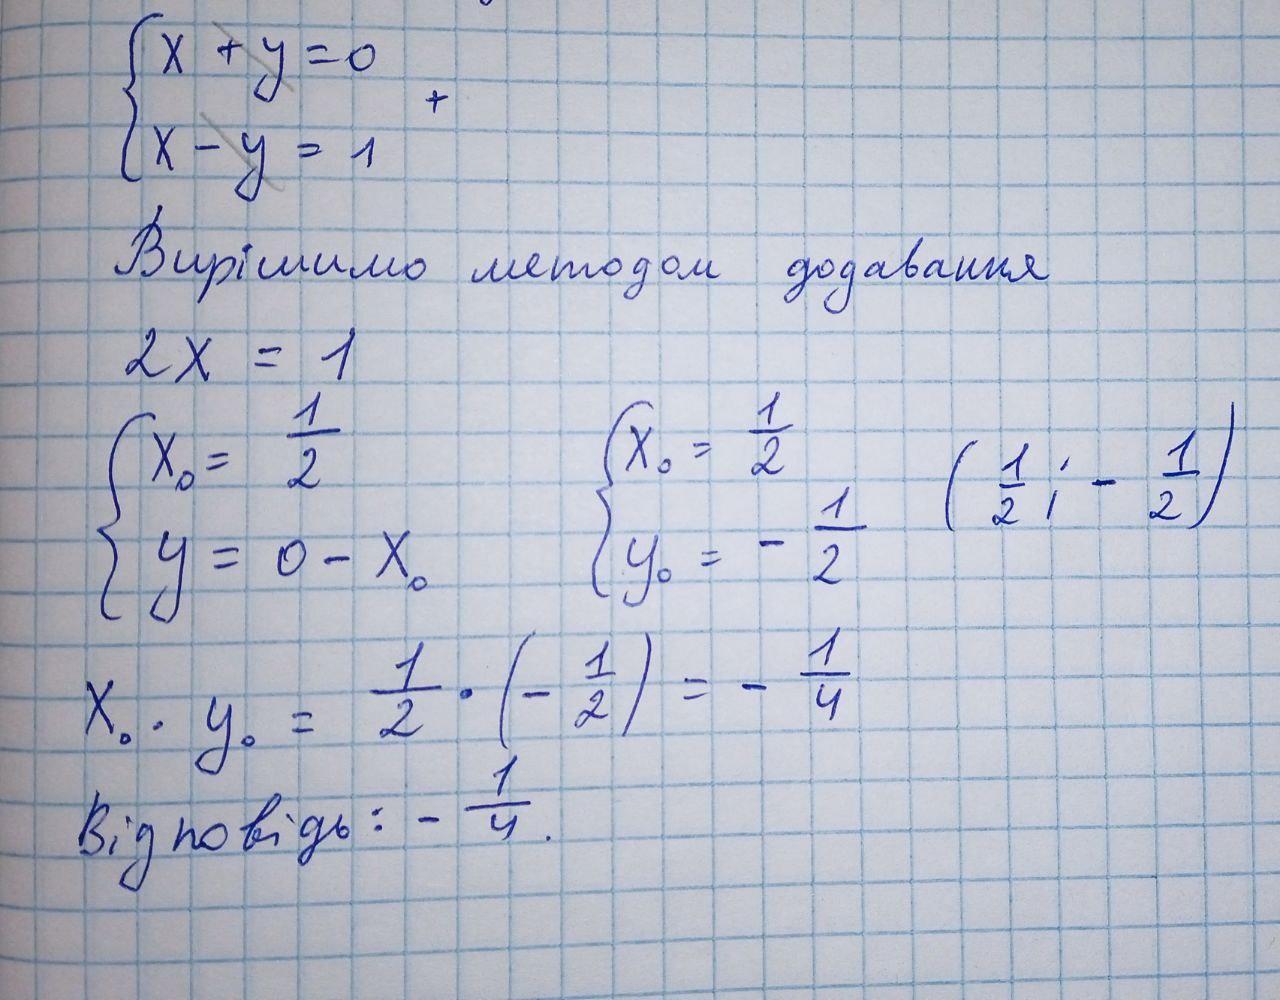 { x + y = 0
+
x - y = 1
Вирішимо методом додавання
2x = 1
{ x₀ = 1/2 { x₀ = 1/2 (1/2 ; - 1/2)
y = 0 - x₀ y₀ = - 1/2
x₀ · y₀ = 1/2 · (- 1/2) = - 1/4
Відповідь: - 1/4.